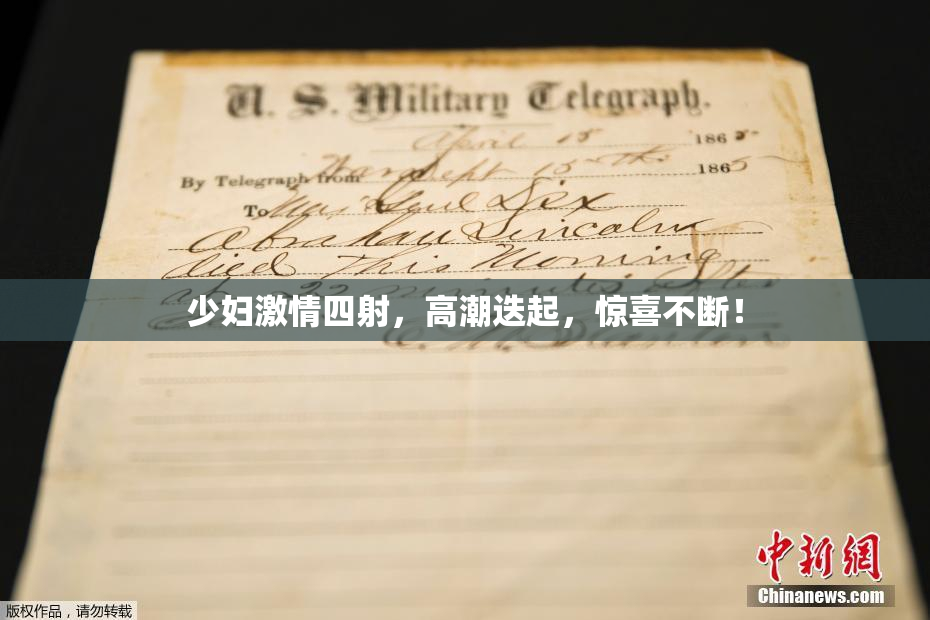 U. S. Military Telegraph.
April 15 1865
By Telegraph from 1865
To Maj Genl Dix
Abraham Lincoln
died This Morning
at 22 minutes after
少妇激情四射，高潮迭起，惊喜不断！
中新网
Chinanews.com
版权作品，请勿转载